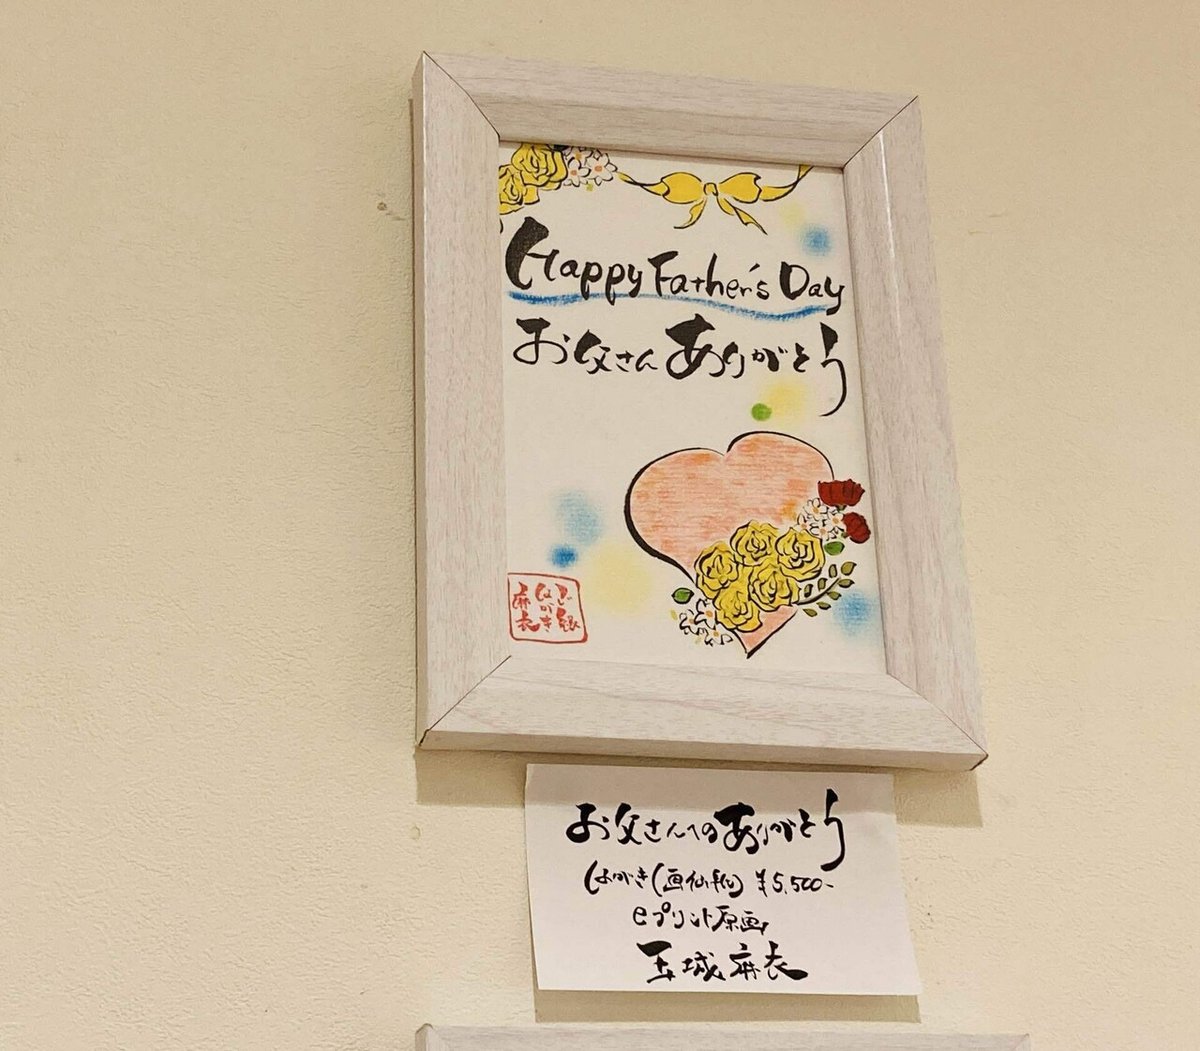 Happy Father's Day
お父さんありがとう
ご縁
はがき
麻衣
お父さんへのありがとう
はがき(画仙紙) ¥5,500-
eプリント原画
玉城麻衣